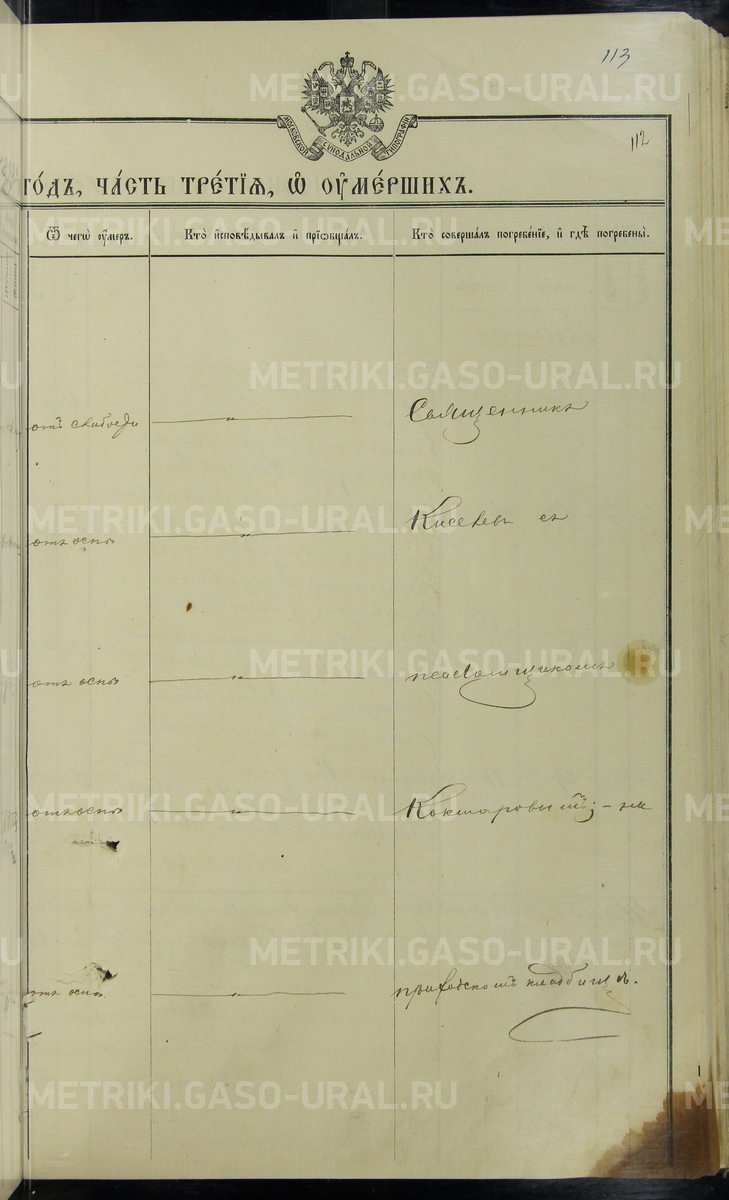 113
112
МОСКОВСКОЙ СѴНОДАЛЬНОЙ ТИПОГРАФІИ
ГО́ДЪ, ЧА́СТЬ ТРЕ́ТІѦ, Ѡ҆ ОУ҆МЕ́РШИХЪ.
Ѿ чегѡ̀ оу҆́меръ.
Кто̀ и҆сповѣ́дывалъ и҆ прїѡбща́лъ.
Кто̀ соверша́лъ погребе́нїе, и҆ гдѣ̀ погребены̀.
отъ слабости
Священникъ
отъ оспы
Киселевъ съ
отъ оспы
псаломщикомъ
отъ оспы
Кокшаровымъ; – на
отъ оспы
приходскомъ кладбищѣ.
METRIKI.GASO-URAL.RU